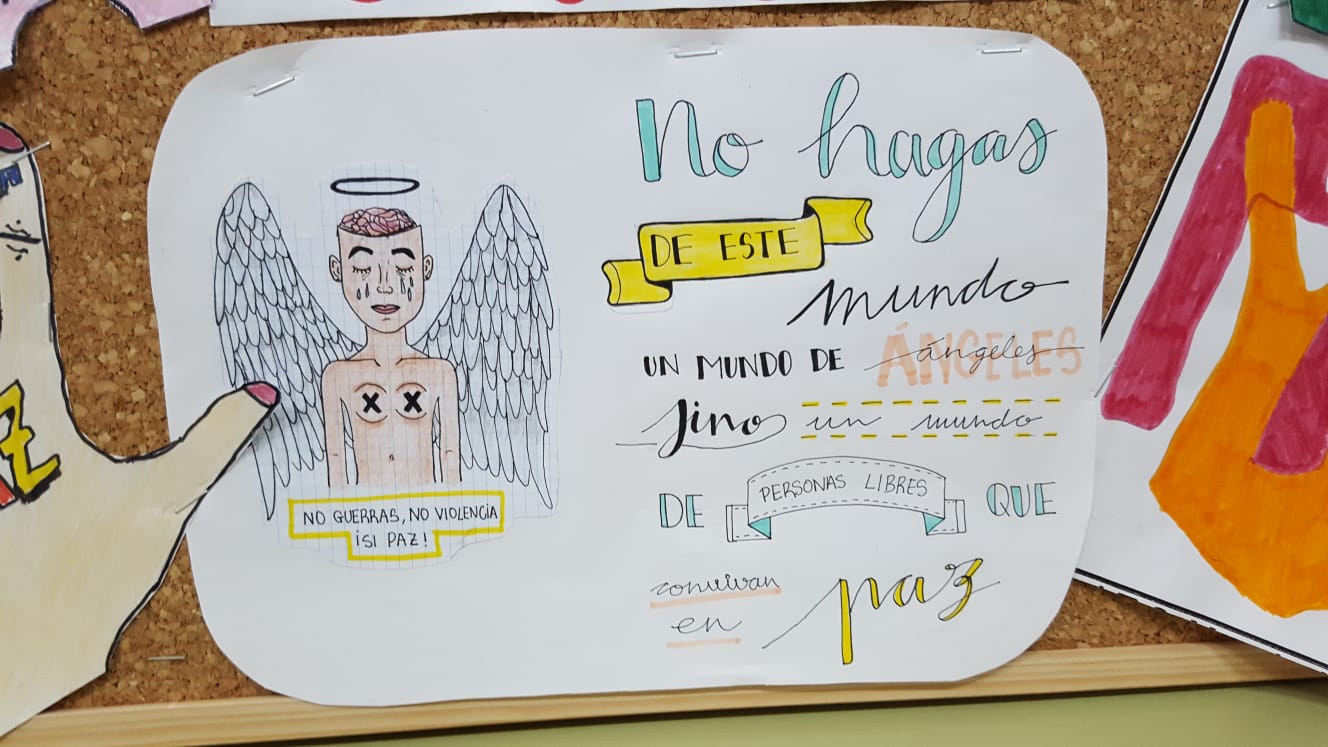 No hagas
DE ESTE
mundo
UN MUNDO DE ÁNGELES ángeles
sino un mundo
DE PERSONAS LIBRES QUE
convivan
en paz
NO GUERRAS, NO VIOLENCIA
¡SI PAZ!